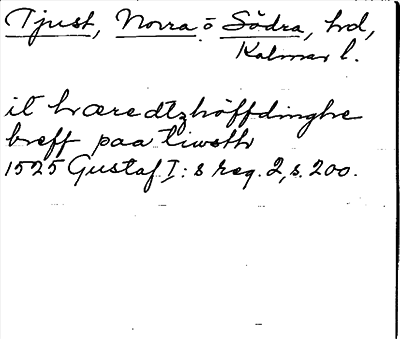 Tjust, Norra o Södra, hd,
Kalmar l.
it hæredtzhöffdinghe
breff paa tiwsth
1525 Gustaf I:s reg. 2, s. 200.